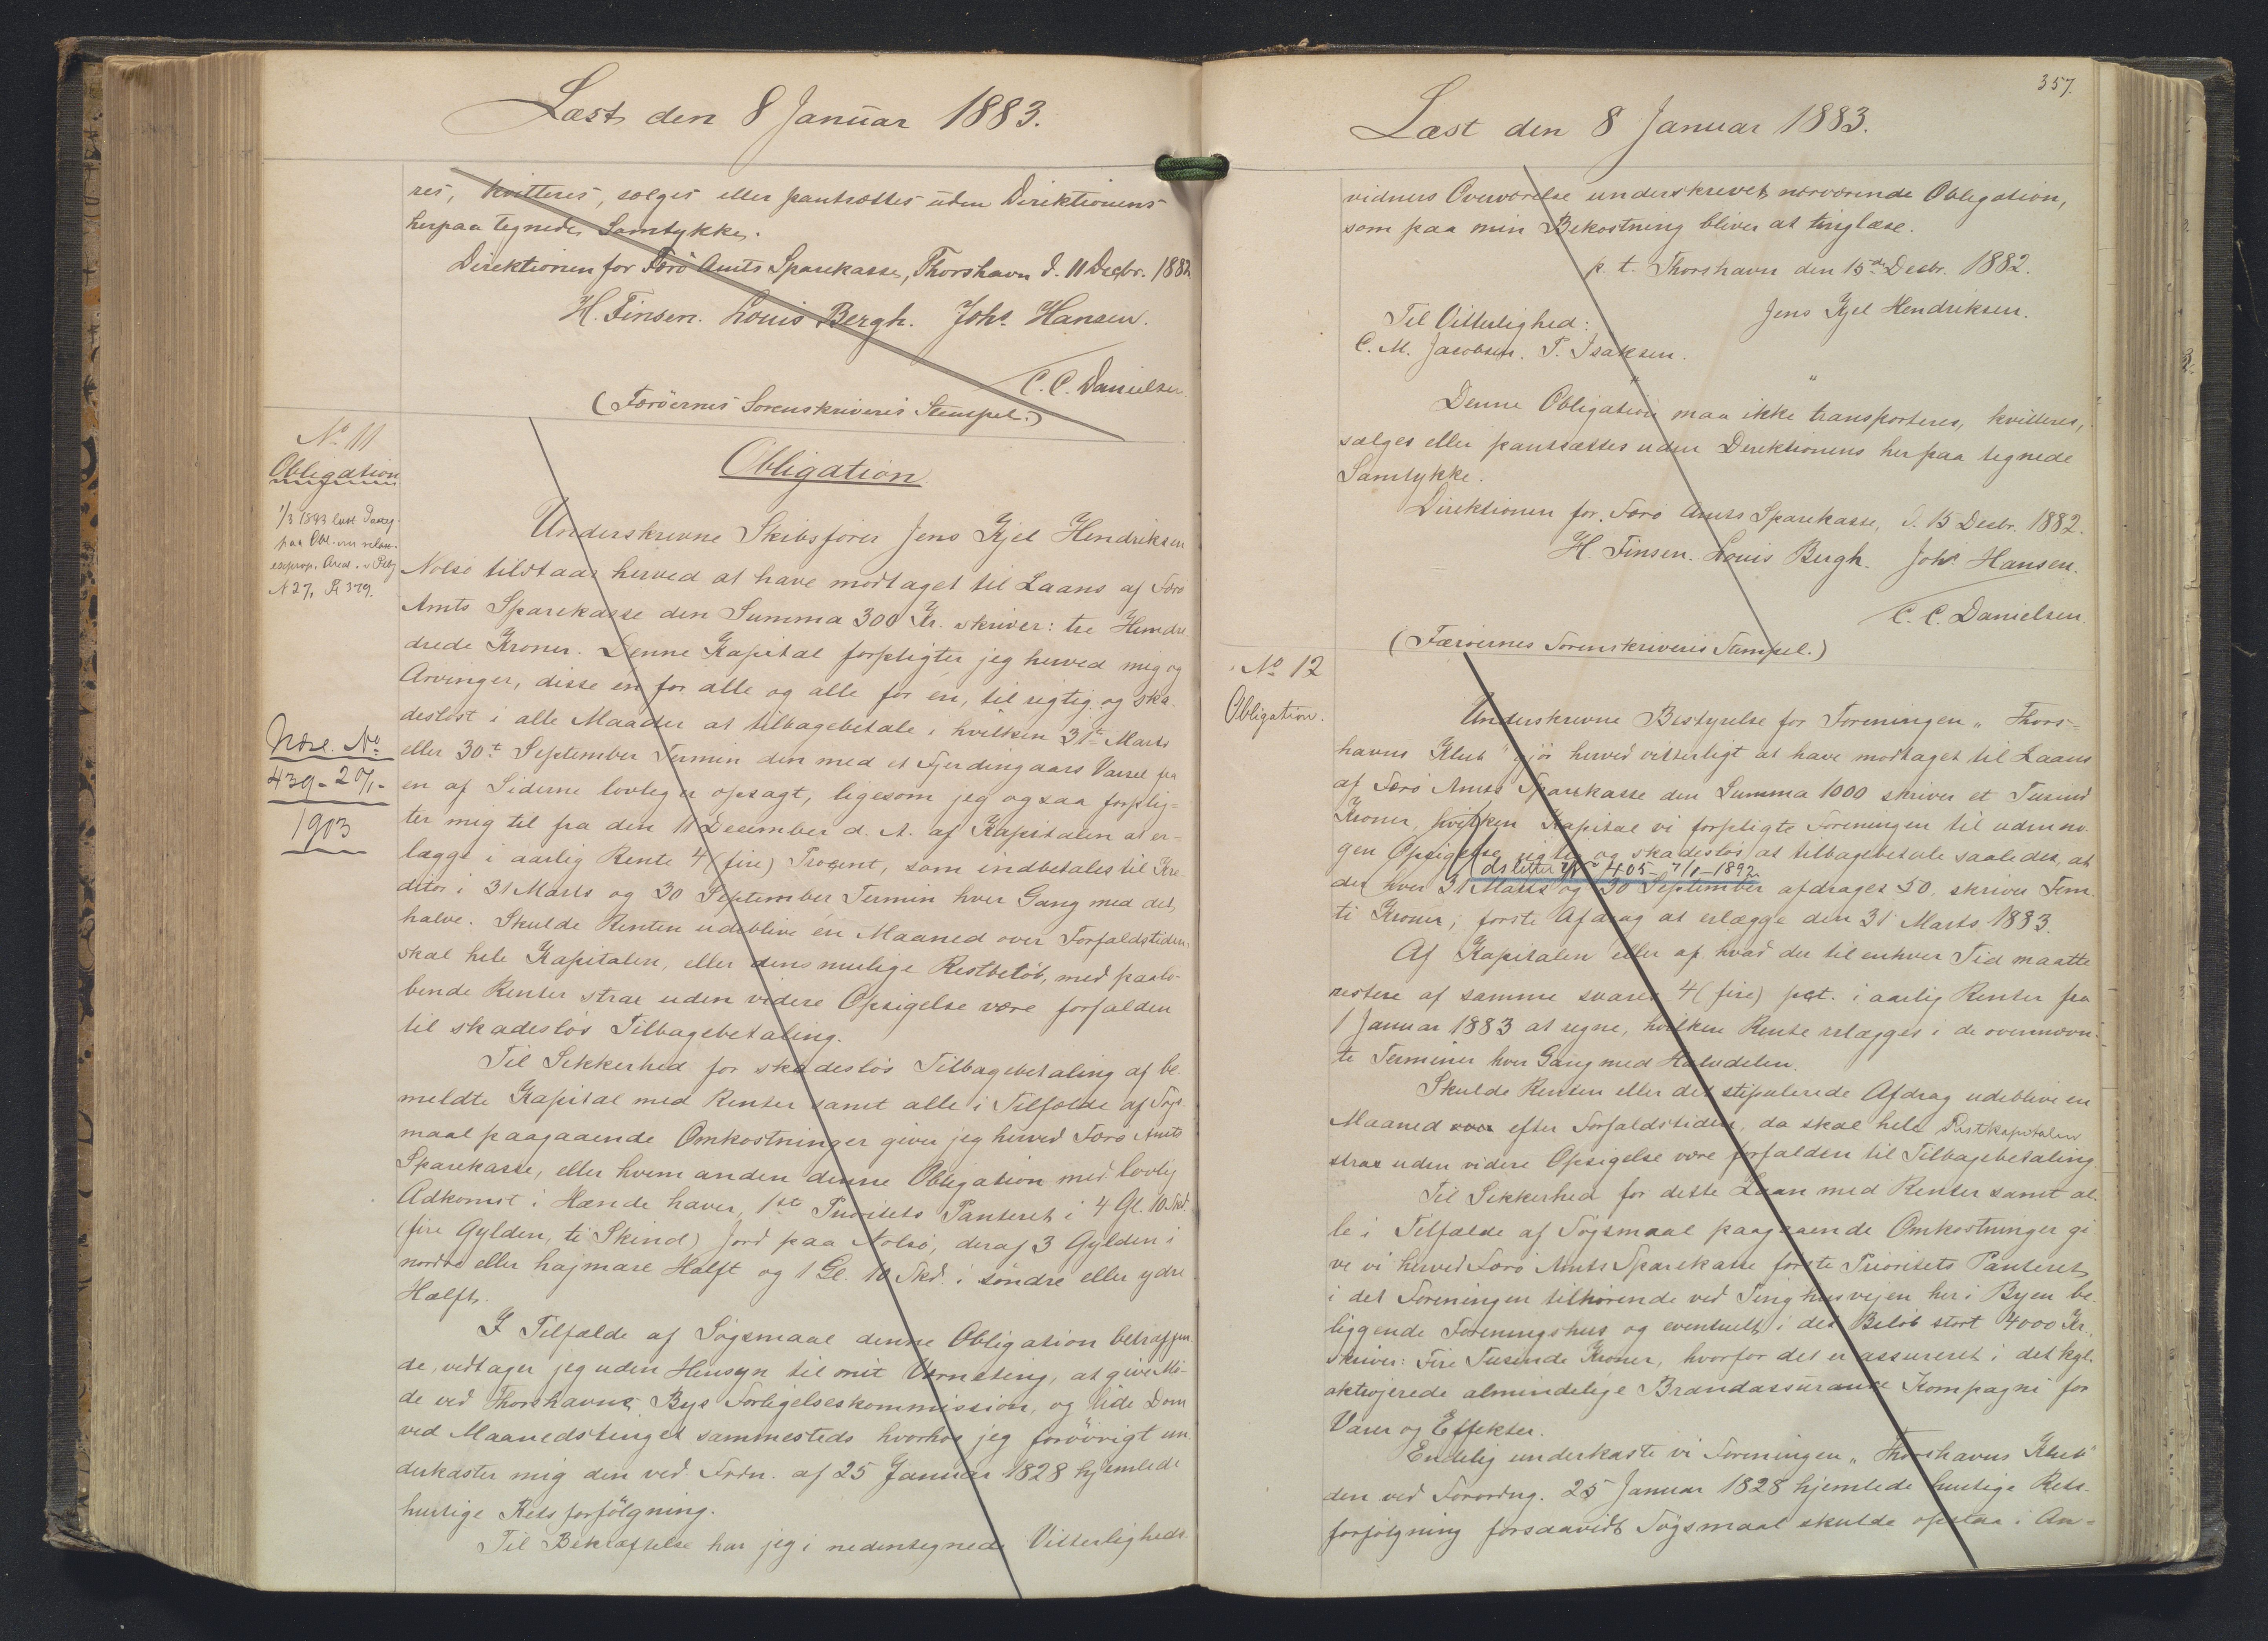 Læst den 8 Januar 1883.
res, kvitteres, sælges eller pantsættes uden Direktionens
herpaa tegnede Samtykke.
Direktionen for Færö Amts Sparekasse, Thorshavn d. 11 Decbr. 1882
H. Finsen. Louis Bergh. Johs. Hansen.
C. C. Danielsen.
(Færöernes Sorenskriveris Stempel.)
No 11
Obligation
1/3 1893 læst
paa Obl. om
N 27,
Nœl. No
439 - 20/1 -
1903
Obligation.
Underskrevne Skibsfører Jens Kjel Hendriksen
Nolsö tilstaar herved at have modtaget til Laans af Færö
Amts Sparekasse den Summa 300 Kr. skriver: tre Hundre
drede Kroner. Denne Kapital forpligter jeg herved mig og
Arvinger, disse en for alle og alle for én, til rigtig og ska-
deslöst i alle Maader at tilbagebetale i hvilken 31te Marts
eller 30t September Termin den med et Fjerdingaars Varsel fra
en af Siderne lovlig er opsagt, ligesom jeg ogsaa forplig-
ter mig til fra den 11 December d. A. af Kapitalen at er-
lægge i aarlig Rente 4 (fire) Procent, som indbetales til Kre-
ditor i 31 Marts og 30 September Termin hver Gang med det
halve. Skulde Renten udeblive én Maaned over Forfaldstiden,
skal hele Kapitalen, eller dens mulige Restbelöb, med paalö-
bende Renter strax uden videre Opsigelse være forfalden
til skadeslös Tilbagebetaling.
Til Sikkerhed for skadeslös Tilbagebetaling af be-
meldte Kapital med Renter samt alle i Tilfælde af Sögs-
maal paagaaende Omkostninger giver jeg herved Færö Amts
Sparekasse, eller hvem anden denne Obligation med lovlig
Adkomst i Hænde haver, 1ste Prioritets Panteret i 4 Gl. 10 Skd.
(fire Gylden, ti Skind) Jord paa Nolsö, deraf 3 Gylden i
nordre eller hajmare Hælft og 1 Gl. 10 Skd. i söndre eller ydre
Hælft.
I Tilfælde af Sögsmaal denne Obligation betræffen-
de, vedtager jeg uden Hensyn til mit Værneting, at give Mö-
de ved Thorshavns Bys Forligelseskommission, og lide Dom
ved Maanedstinget sammesteds hvorhos jeg foröövrigt un-
derkaster mig den ved Frdn. af 25 Januar 1828 hjemlede
hurtige Retsforfölgning.
Til Bekræftelse har jeg i nedentegnede Vitterligheds-
357.
Læst den 8 Januar 1883.
vidners Overværelse underskrevet nærværende Obligation,
som paa min Bekostning bliver at tinglæse.
p. t. Thorshavn den 15de Decbr. 1882.
Jens Kjel Hendriksen.
Til Vitterlighed:
C. M. Jacobsen. P. Isaksen.
" "
Denne Obligation maa ikke transporteres, kvitteres,
sælges eller pantsættes uden Direktionens herpaa tegnede
Samtykke.
Direktionen for Færö Amts Sparekasse, d. 15 Decbr. 1882.
H. Finsen. Louis Bergh. Johs. Hansen.
C. C. Danielsen.
(Færöernes Sorenskriveris Stempel.)
No 12
Obligation.
Underskrevne Bestyrelse for Foreningen „Thors-
havns Klub" gjör herved vitterligt at have modtaget til Laans
af Færö Amts Sparekasse den Summa 1000 skriver et Tusind
Kroner, hvilken Kapital vi forpligte Foreningen til uden no-
gen Opsigelse rigtig og skadeslös at tilbagebetale saaledes, at
405 - 7/1 - 1892
der hver 31 Marts og 30 September afdrages 50, skriver Fem-
ti Kroner; förste Afdrag at erlægge den 31 Marts 1883.
Af Kapitalen eller af hvad der til enhver Tid maatte
restere af samme svares 4 (fire) pct. i aarlig Renter fra
1 Januar 1883 at regne, hvilken Rente erlægges i de ovennævn-
te Terminer hver Gang med Halvdelen.
Skulde Renten eller det stipulerede Afdrag udeblive en
Maaned over efter Forfaldstiden, da skal hele Restkapitalen
strax uden videre Opsigelse være forfalden til Tilbagebetaling.
Til Sikkerhed for dette Laan med Renter samt al-
le i Tilfælde af Sögsmaal paagaaende Omkostninger gi-
ve vi herved Færö Amts Sparekasse förste Prioritets Panteret
i det Foreningen tilhörende ved Tinghusvejen her i Byen be-
liggende Foreningshus og eventuelt i det Belöb stort 4000 Kr.,
skriver: Fire Tusinde Kroner, hvorfor det er assureret i det kgl.
oktrojerede almindelige Brandassurance Kompagni for
Varer og Effekter.
Endelig underkaste vi Foreningen „Thorshavns Klub"
den ved Forordng. 25 Januar 1828 hjemlede hurtige Rets-
forfölgning forsaavidt Sögsmaal skulde opstaa i An-